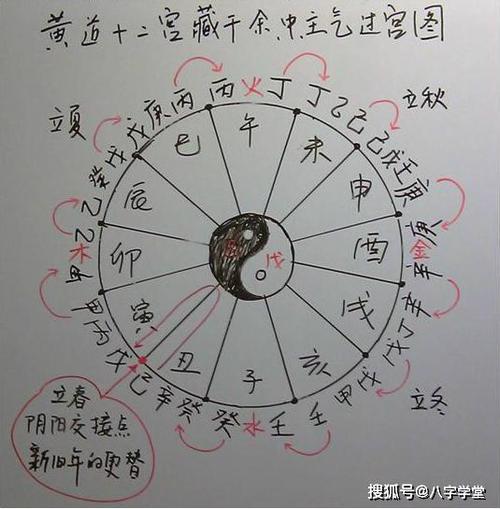 黄道十二宫藏干余中主气过宫图
丙 火 丁
丁 乙 己
立秋
己 戊 壬 庚
庚 金 辛
辛 丁 戊
立冬
戊 甲 壬
壬 水 癸
癸 辛 己
戊 丙 甲
甲 木 乙
乙 癸 戊
立夏
戊 庚 丙
巳
午
未
申
酉
戌
亥
子
丑
寅
卯
辰
己
戊
立春
阴阳交接点
新旧年的更替
搜狐号@八字学堂